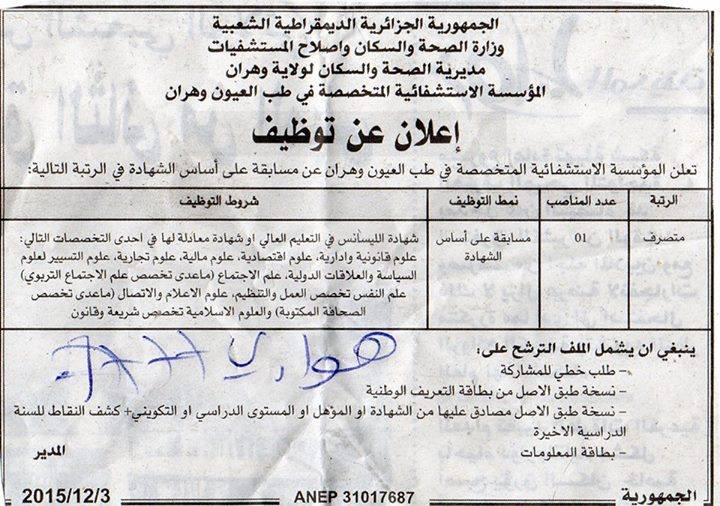 الجمهورية الجزائرية الديمقراطية الشعبية
وزارة الصحة والسكان واصلاح المستشفيات
مديرية الصحة والسكان لولاية وهران
المؤسسة الاستشفائية المتخصصة في طب العيون وهران
إعلان عن توظيف
تعلن المؤسسة الاستشفائية المتخصصة في طب العيون وهران عن مسابقة على أساس الشهادة في الرتبة التالية:
الرتبة
عدد المناصب
نمط التوظيف
شروط التوظيف
متصرف
01
مسابقة على أساس
الشهادة
شهادة الليسانس في التعليم العالي او شهادة معادلة لها في احدى التخصصات التالي:
علوم قانونية وادارية، علوم اقتصادية، علوم مالية، علوم تجارية، علوم التسيير لعلوم
السياسة والعلاقات الدولية، علم الاجتماع (ماعدى تخصص علم الاجتماع التربوي)
علم النفس تخصص العمل والتنظيم، علوم الاعلام والاتصال (ماعدى تخصص
الصحافة المكتوبة) والعلوم الاسلامية تخصص شريعة وقانون
ينبغي ان يشمل الملف الترشح على:
– طلب خطي للمشاركة
– نسخة طبق الاصل من بطاقة التعريف الوطنية
– نسخة طبق الاصل مصادق عليها من الشهادة او المؤهل او المستوى الدراسي او التكويني+ كشف النقاط للسنة
الدراسية الاخيرة
– بطاقة المعلومات
المدير
هواري
الجمهورية
ANEP 31017687
2015/12/3